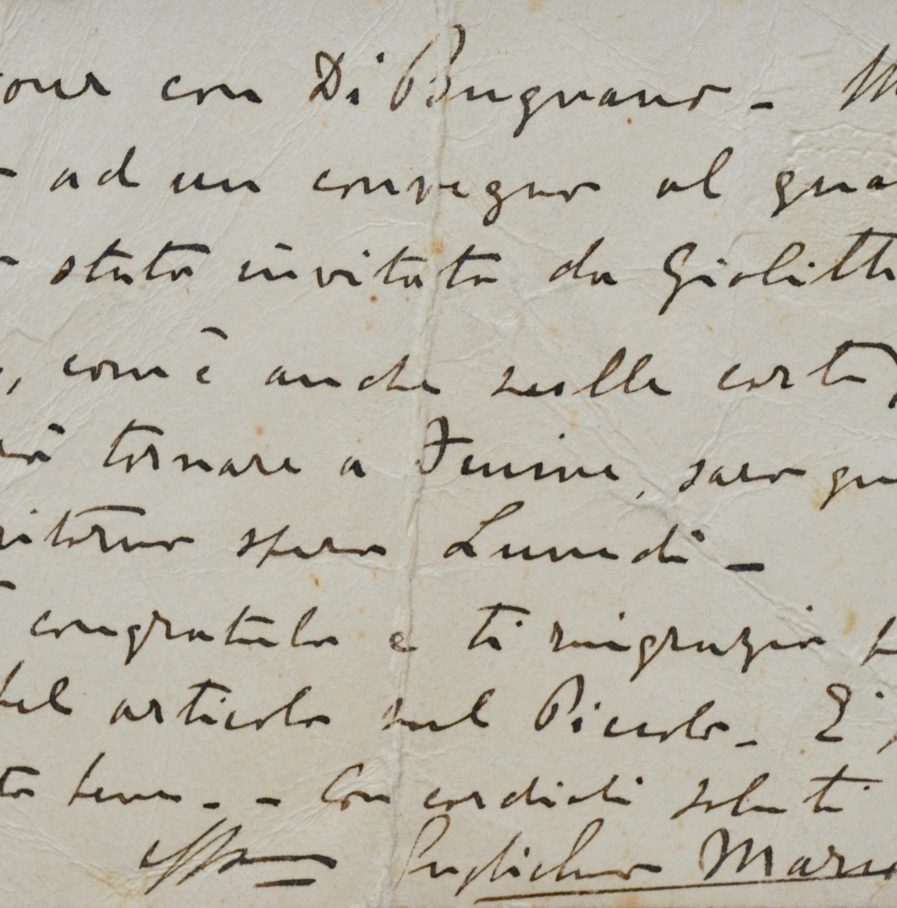 con Di Bugnano - 
ad un convegno al qua
stato invitato da Giolitti
, com'è anche nelle carte
tornare a Torino, sarò qu
ritorno spero Lunedì -
congratulo e ti ringrazio
articolo sul Piccolo - E'
bene. - Con cordiali saluti
Guglielmo Marco